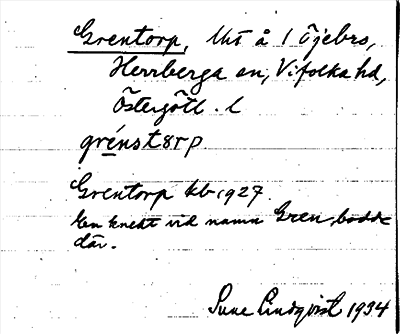 Grentorp, lht å 1 Öjebro,
Herrberga sn, Vifolka hd,
Östergötl. l
grénstørp
Grentorp kb 1927
En knekt vid namn Gren, bodde
där.
Sune Lindqvist 1934